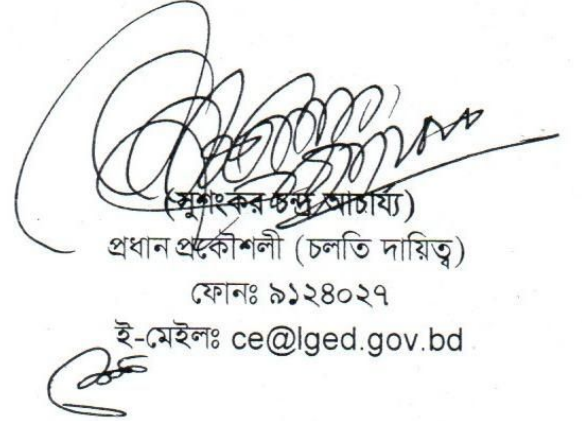 (সুশংকর চন্দ্র আচার্য্য)
প্রধান প্রকৌশলী (চলতি দায়িত্ব)
ফোনঃ ৯১২৪০২৭
ই-মেইলঃ ce@lged.gov.bd